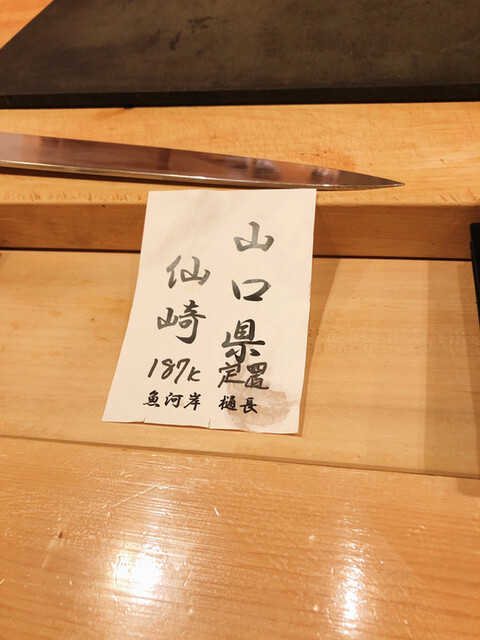 山口県
仙崎
187K 定置
魚河岸 樋長